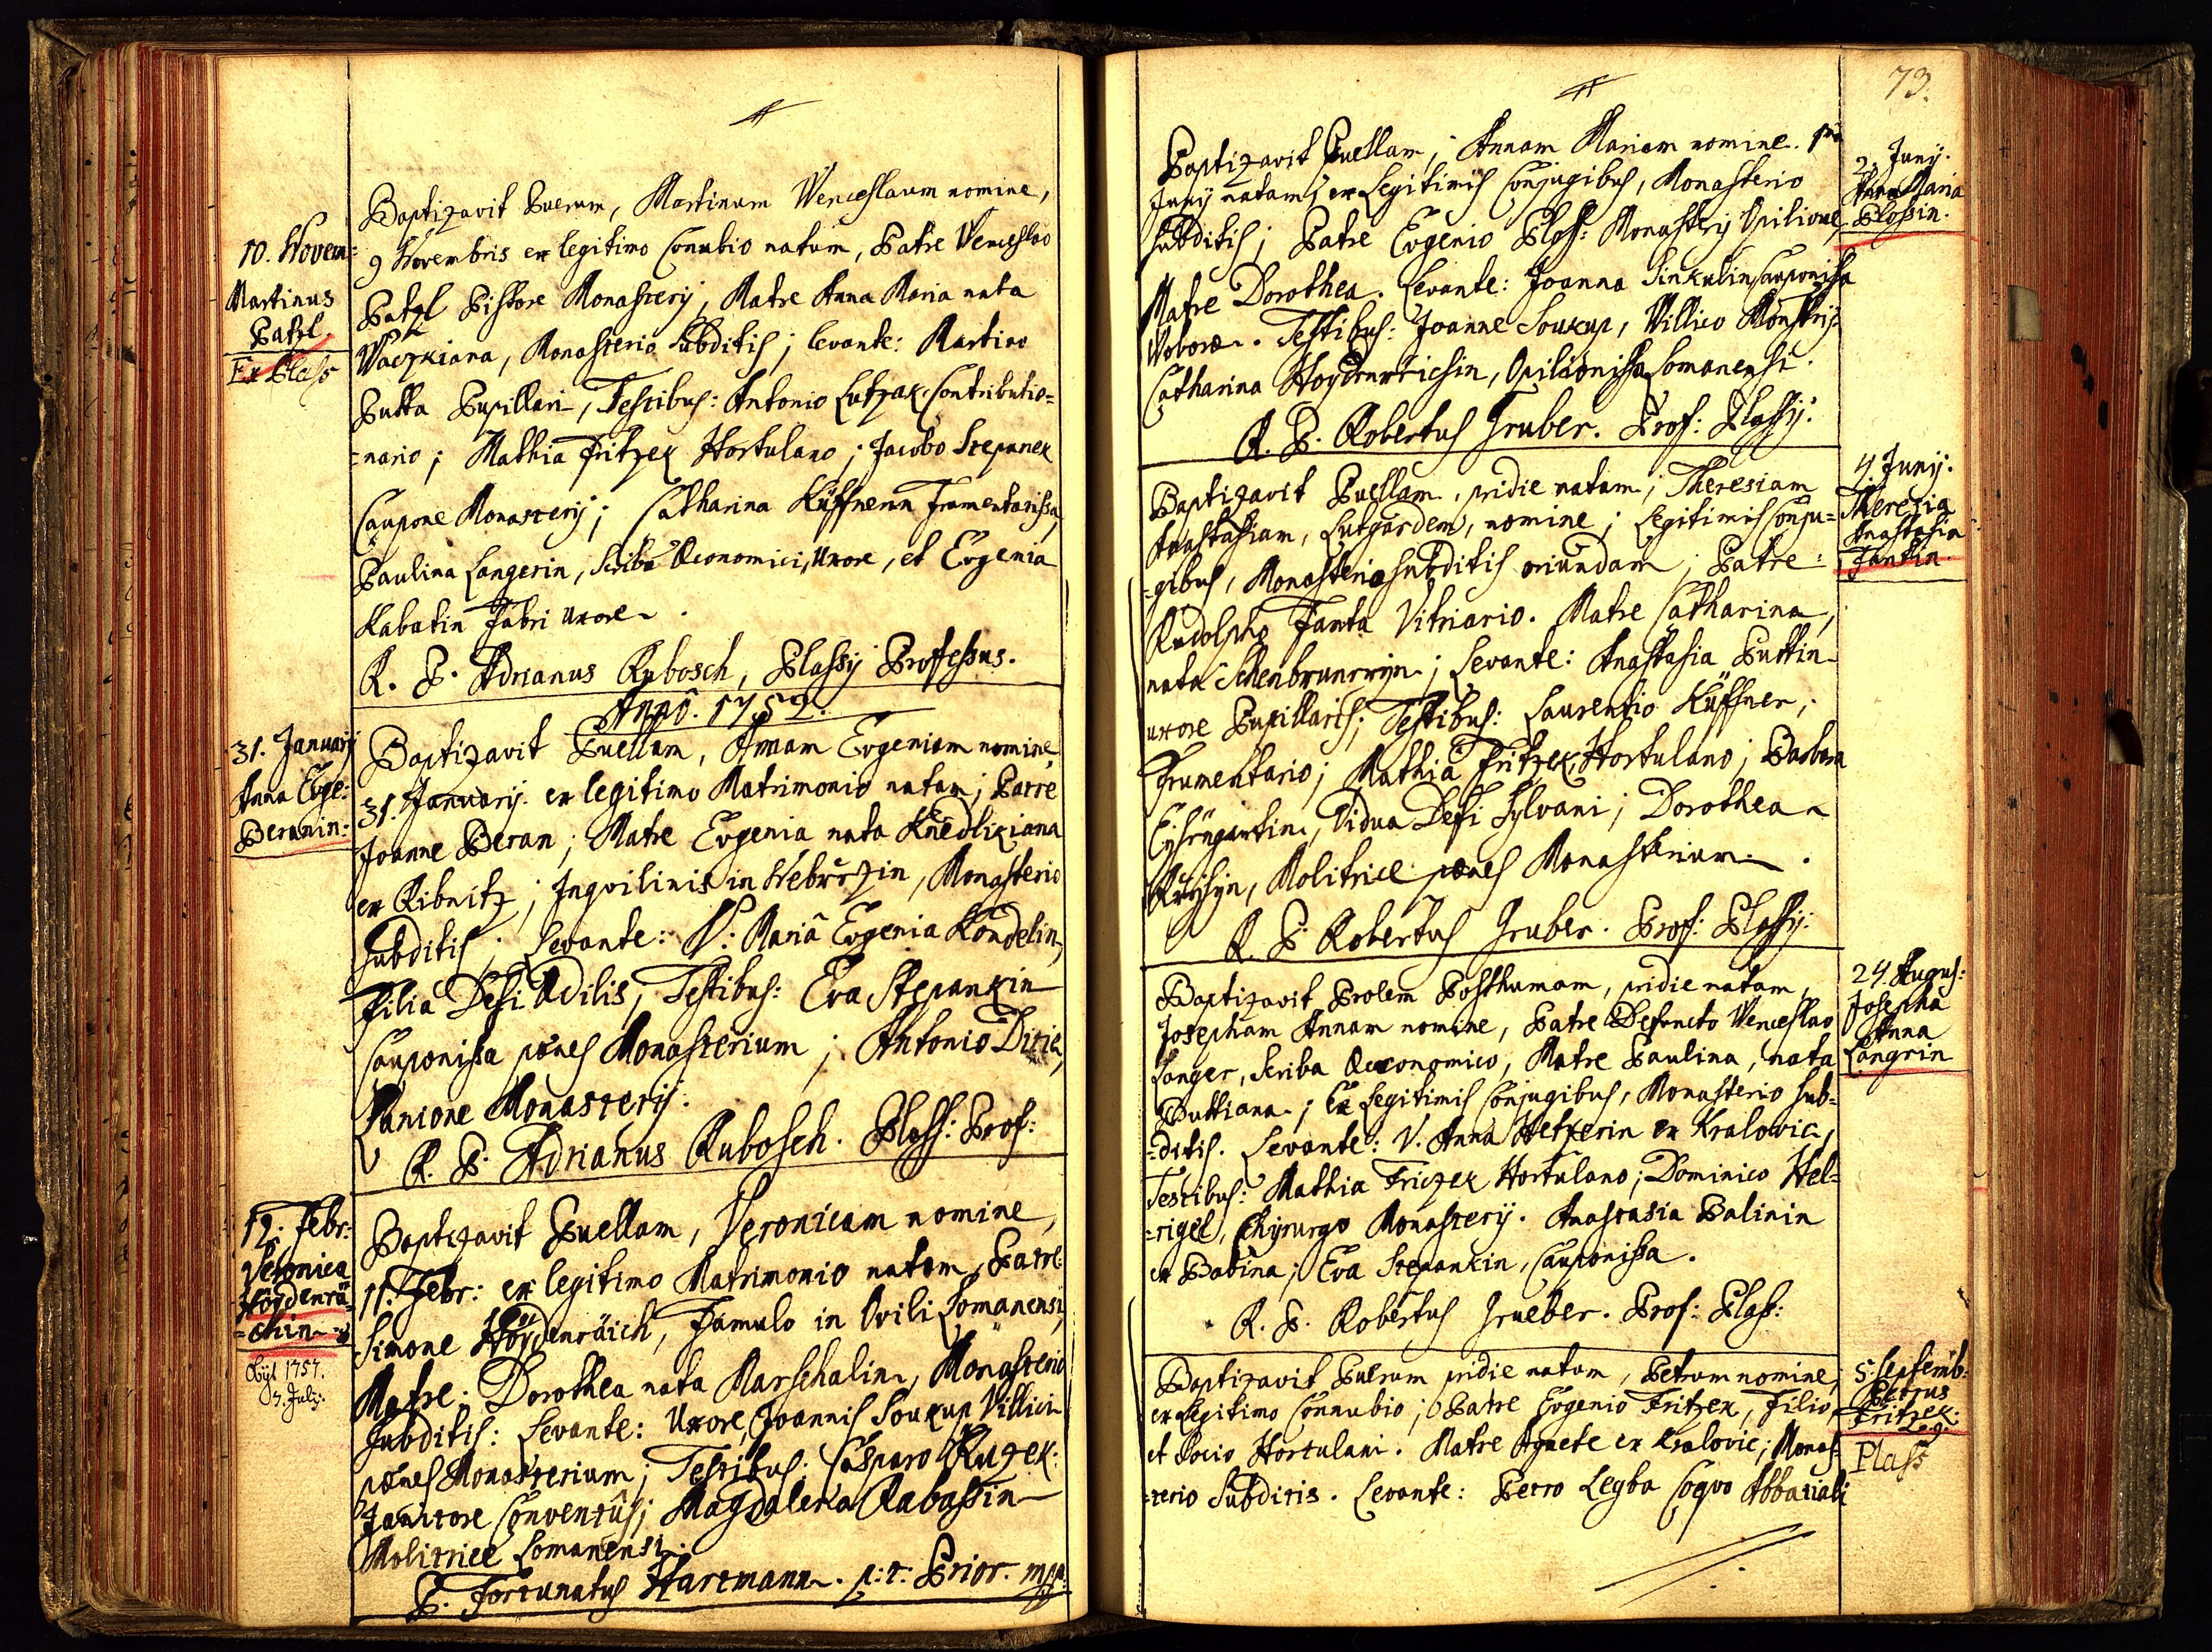 10. Novem:
Martinus
Patzl.
Ex Plass
Baptizavit Puerum, Martinum Wenceslaum nomine,
9 Novembris ex legitimo Conubio natum, Patre Wenceslao
Patzl Pistore Monasterij, Matre Anna Maria nata
Waczkiana, Monasterio Subditis; levante: Martino
Putta Pupillari, Testibus: Antonio Lutzak Contributio=
=nario; Mathia Fritzek Hortulano; Jacobo Stepanek
Caupone Monasterij; Catharina Küffnerin Frumentarissa,
Paulina Langerin, Scribae Oeconomici, Uxore, et Evgenia
Kabatin Fabri uxore.
R. P. Adrianus Rubosch, Plassij Professus.
Anno. 1752.
31. Januarij
Anna Evge:
Beranin:
Baptizavit Puellam, Annam Evgeniam nomine,
31. Januarij. ex legitimo Matrimonio natam; Patre
Joanne Beran; Matre Evgenia nata Knedlikiana
ex Ribnitz; Inqvilinis in Nebrzezin, Monasterio
Subditis; Levante: V: Mariâ Evgenia Kondelin,
Filiâ Defti Aedilis, Testibus: Eva Stepankin
Cauponissa pônes Monasterium; Antonio Ditie,
Lanione Monasterij.
R. P. Adrianus Rubosch. Plass: Prof:
12. Febr:
Veronica
Höydenrä=
=chin
Obijt 1757.
7. Julij.
Baptizavit Puellam, Veronicam nomine,
11. Febr: ex legitimo Matrimonio natam, Patre
Simone Höydenräich, Famulo in Ovili Lomanensi,
Matre: Dorothea nata Marschalin, Monasterio
Subditis: Levante: Uxore Joannis Soukup Villici
pônes Monasterium; Testibus: Casparo Ruzek:
Janitore Conventûs; Magdalena Rabassin
Molitrice Lomanensi.
P. Fortunatus Hartmann. p: t: Prior. mpp.
73.
2. Junij.
Anna Maria
Plossin.
Baptizavit Puellam, Annam Mariam nomine. 1ma
Junij natam, ex Legitimis Conjugibus, Monasterio
Subditis; Patre Evgenio Ploss: Monasterij Opilione,
Matre Dorothea. Levante: Joanna Sinkulin, Cauponissa
Woborae. Testibus: Joanne Soukup, Villico Monstrij.
Catharina Hoydenreichin, Opilionissa Lomanensi.
R. P. Robertus Gruber. Prof: Plassij:
4. Junij.
Therezia
Anastasia
Jantin.
Baptizavit Puellam, pridie natam; Theresiam
Anastasiam, Lutgardem, nomine; Legitimis Conju=
=gibus, Monasterio Subditis oriundam; Patre:
Rudolpho Janta Vitriario. Matre Catharina,
nata Schenbrunerijn; Levante: Anastasia Puttin
uxore Pupillaris; Testibus: Laurentio Küffner,
Frumentario; Mathia Fritzek, Hortulano; Barbara
Vidua Defti Sylvani; Dorothea
Molitrice pônes Monasterium.
R. P. Robertus Gruber. Prof: Plassij:
24. Augus:
Josepha
Anna
Langrin
Baptizavit Prolem Posthumam, pridie natam,
Josepham Annam nomine, Patre Defuncto Wenceslao
Langer, Scriba Oeconomico, Matre Paulina, nata
Puttiana; Ex Legitimis Conjugibus, Monasterio Sub=
=ditis. Levante: V. Anna Hetzerin ex Kralovic,
Testibus: Mathia Friczek Hortulano; Dominico Hel=
=rigel, Chyrurgo Monasterij. Anastasia Balinin
ex Babina; Eva Stepankin, Cauponissa.
R. P. Robertus Grueber. Prof: Plass:
5. Septemb:
Petrus
Fritzek:
Leg:
Plass
Baptizavit Puerum pridie natum, Petrum nomine,
ex Legitimo Connubio; Patre Evgenio Fritzek, Filio,
et Socio Hortulani. Matre Agnete ex Kralovic; Monas=
=terio Subditis. Levante: Petro Legba Coqvo Abbatiali